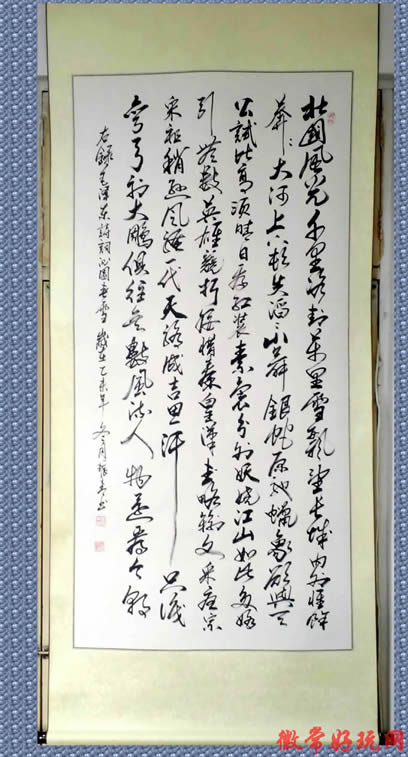 北國風光千里冰封万里雪飘望长城内外惟馀
莽莽大河上下顿失滔滔山舞银蛇原驰蠟象欲與天
公試比高須晴日看红装素裹分外妖娆江山如此多娇
引无數英雄競折腰惜秦皇漢武略输文采唐宗
宋祖稍逊风骚一代天骄成吉思汗只識
弯弓射大鵰俱往矣數風流人物还看今朝
右錄毛泽东詩詞沁園春雪歲在乙未年冬月书
徽常好玩网